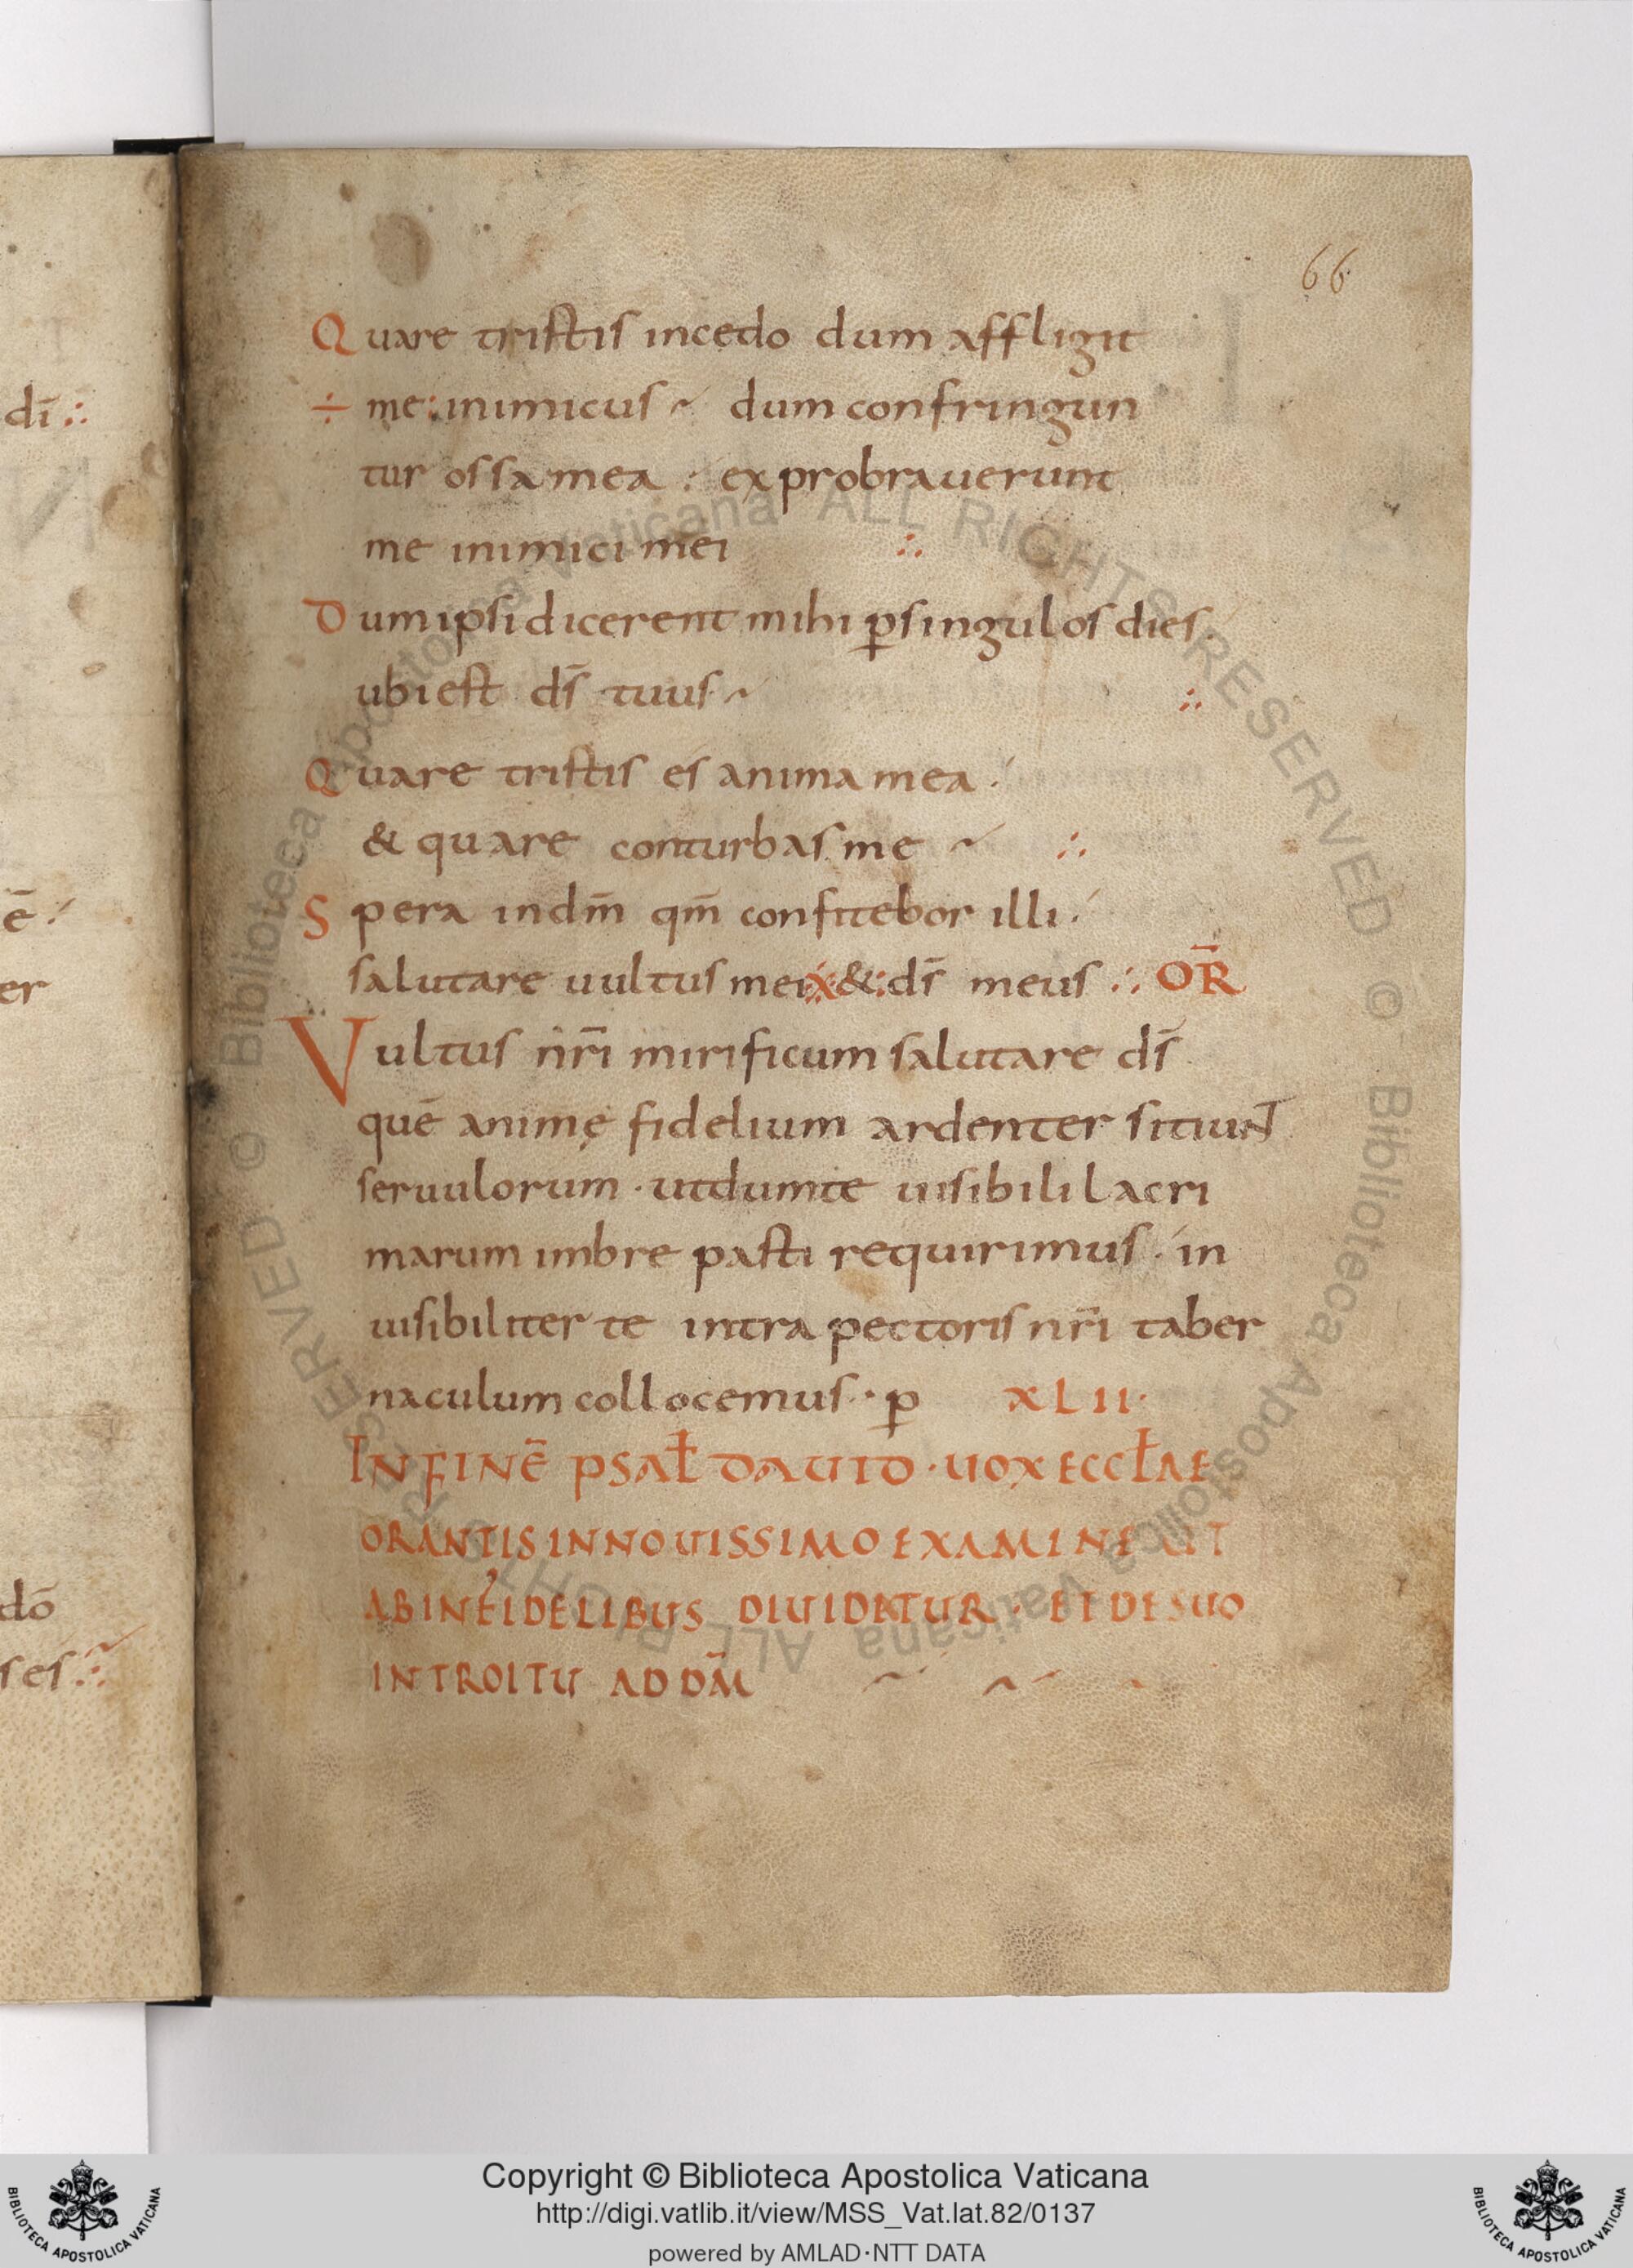 66
Quare tristis incedo dum affligit
÷ me: inimicus dum confringun
tur ossa mea : exprobrauerunt
me inimici mei ∴
Dum ipsi dicerent mihi ꝑ singulos dies.
ubi est dс̄ tuus ∴
Quare tristis es anima mea :
& quare conturbas me ∴
Spera in dm̄ qm̄ confitebor illi :
salutare uultus mei ※ & : ds̄ meus ∴ OR̄
Vultus nr̄i mirificum salutare ds̄
quē animę fidelium ardenter sitiunt
seruulorum · ut dum te uisibili lacri
marum imbre pasti requirimus : in
uisibiliter te intra pectoris nr̄i taber
naculum collocemus · ꝑ XLII·
IN FINĒ PSAL̄ DAUID · UOX ECCL̄AE
ORANTIS IN NOUISSIMO EXAMINE UT
AB INFIDELIBUS DIUIDATUR · ET DE SUO
INTROITU AD DM̄
di ∴
ē :
er
dō
ses ∴
© Biblioteca Apostolica Vaticana ALL RIGHTS RESERVED
© Biblioteca Apostolica Vaticana ALL RIGHTS RESERVED
Copyright © Biblioteca Apostolica Vaticana
http://digi.vatlib.it/view/MSS_Vat.lat.82/0137
powered by AMLAD·NTT DATA
BIBLIOTECA APOSTOLICA VATICANA
BIBLIOTECA APOSTOLICA VATICANA